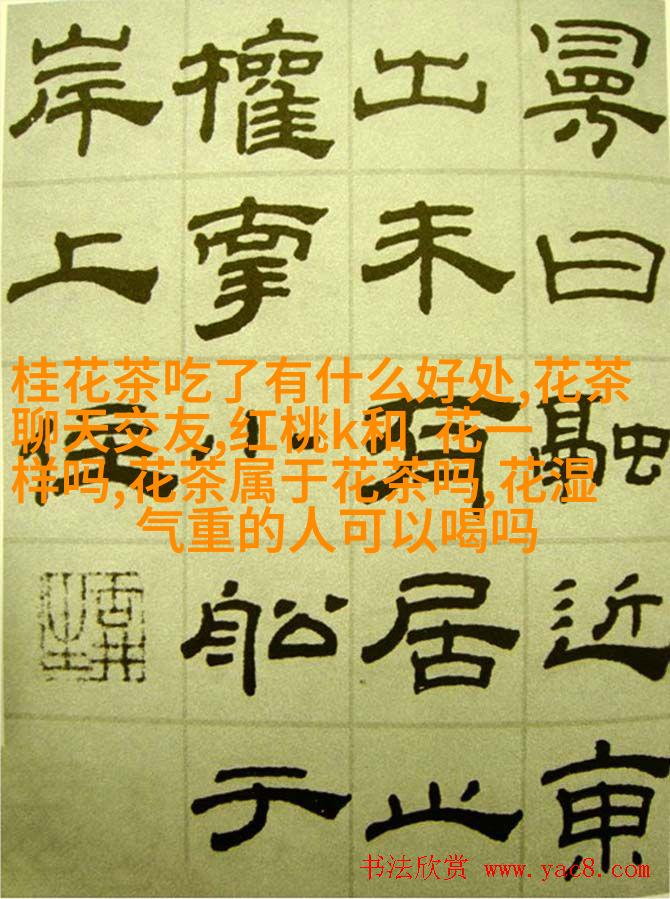 曰融近東
出未有居止
權牽小舩于
岸上住
桂花茶吃了有什么好处,花茶
聊天交友,红桃k和 花一
样吗,花茶属于花茶吗,花湿
气重的人可以喝吗
书法欣赏 www.yac8.com